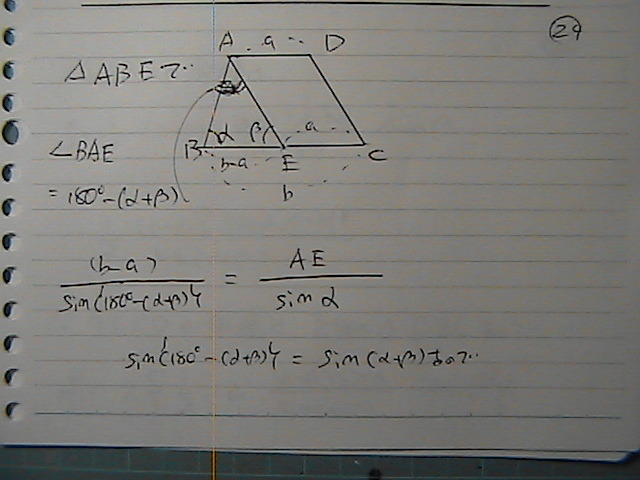 ㉙
A a D
△ABEで
α β a
∠BAE
B b-a E C
= 180°-(α+β)
b
(b-a) / sin{180°-(α+β)} = AE / sin α
sin{180°-(α+β)} = sin(α+β)なので